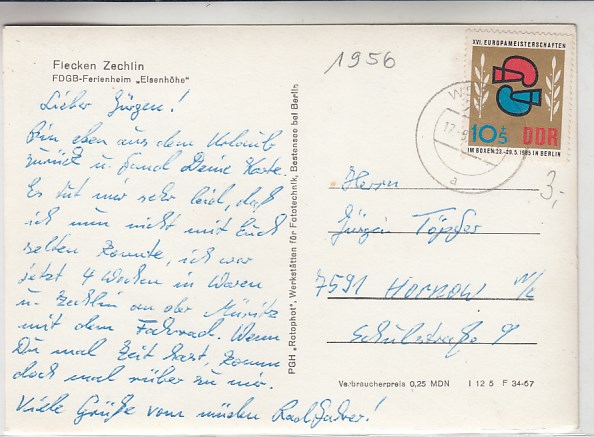 Flecken Zechlin
FDGB-Ferienheim „Elsenhöhe"
1956
XVI. EUROPAMEISTERSCHAFTEN
10+5 DDR
IM BOXEN 22.-29.5.1965 IN BERLIN
W
17.-
a
3,-
Lieber Jürgen!
Bin eben aus dem Urlaub
zurück u. fand Deine Karte.
Es tut mir sehr leid, daß
ich nun nicht mit Euch
zelten konnte, ich war
jetzt 4 Wochen in Waren
u. Zechlin an der Müritz
mit dem Fahrrad. Wenn
Du mal Zeit hast, komm
doch mal rüber zu mir.
Viele Grüße vom müden Radfahrer!
PGH „Rotophot", Werkstätten für Fototechnik, Bestensee bei Berlin
Herrn
Jürgen Töpfer
7591 Hornow N/L
Schulstraße 9
Verbraucherpreis 0,25 MDN I 12 5 F 34-67